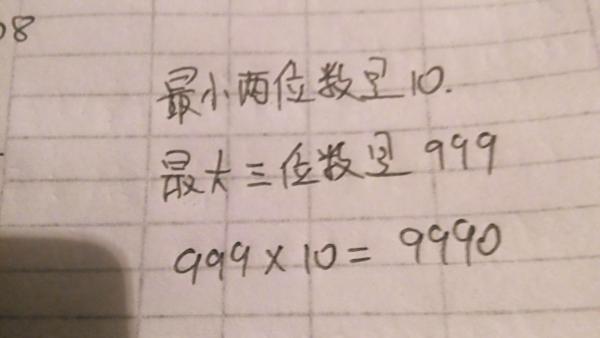 08
最小两位数是10.
最大三位数是 999
999×10= 9990